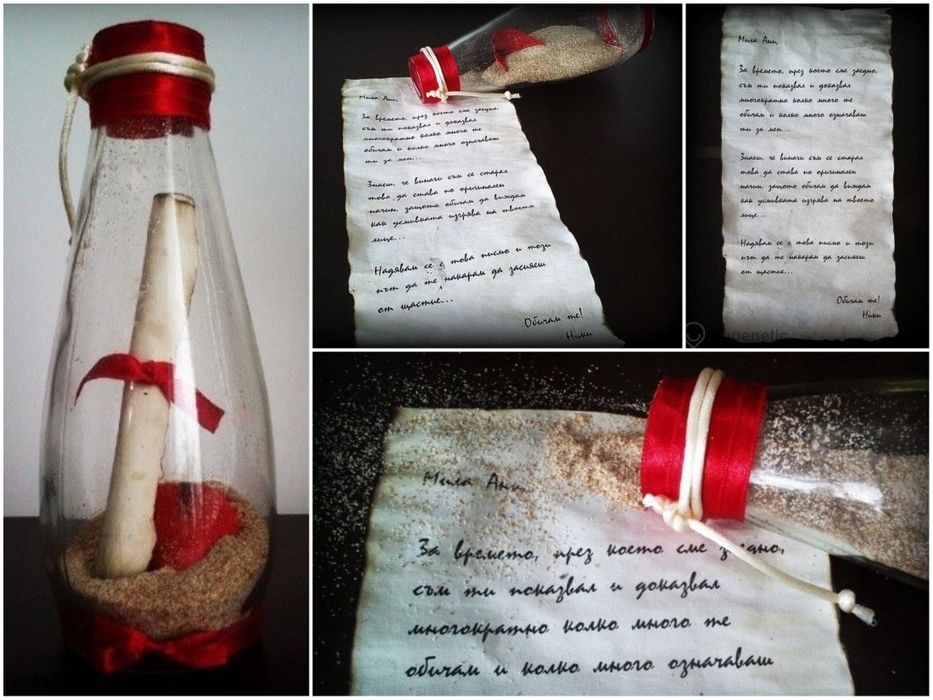 Мила Ани,
За времето, през което сме заедно,
съм ти показвал и доказвал
многократно колко много те
обичам и колко много означаваш
ти за мен...
Знаеш, че винаги съм се старал
това да става по оригинален
начин, защото обичам да виждам
как усмивката изгрява на твоето
лице...
Надявам се с това писмо и този
път да те накарам да засияеш
от щастие...
Обичам те!
Ники
Мила Ани,
За времето, през което сме заедно,
съм ти показвал и доказвал
многократно колко много те
обичам и колко много означаваш
ти за мен...
Знаеш, че винаги съм се старал
това да става по оригинален
начин, защото обичам да виждам
как усмивката изгрява на твоето
лице...
Надявам се с това писмо и този
път да те накарам да засияеш
от щастие...
Обичам те!
Ники
Мила Ани,
За времето, през което сме заедно,
съм ти показвал и доказвал
многократно колко много те
обичам и колко много означаваш